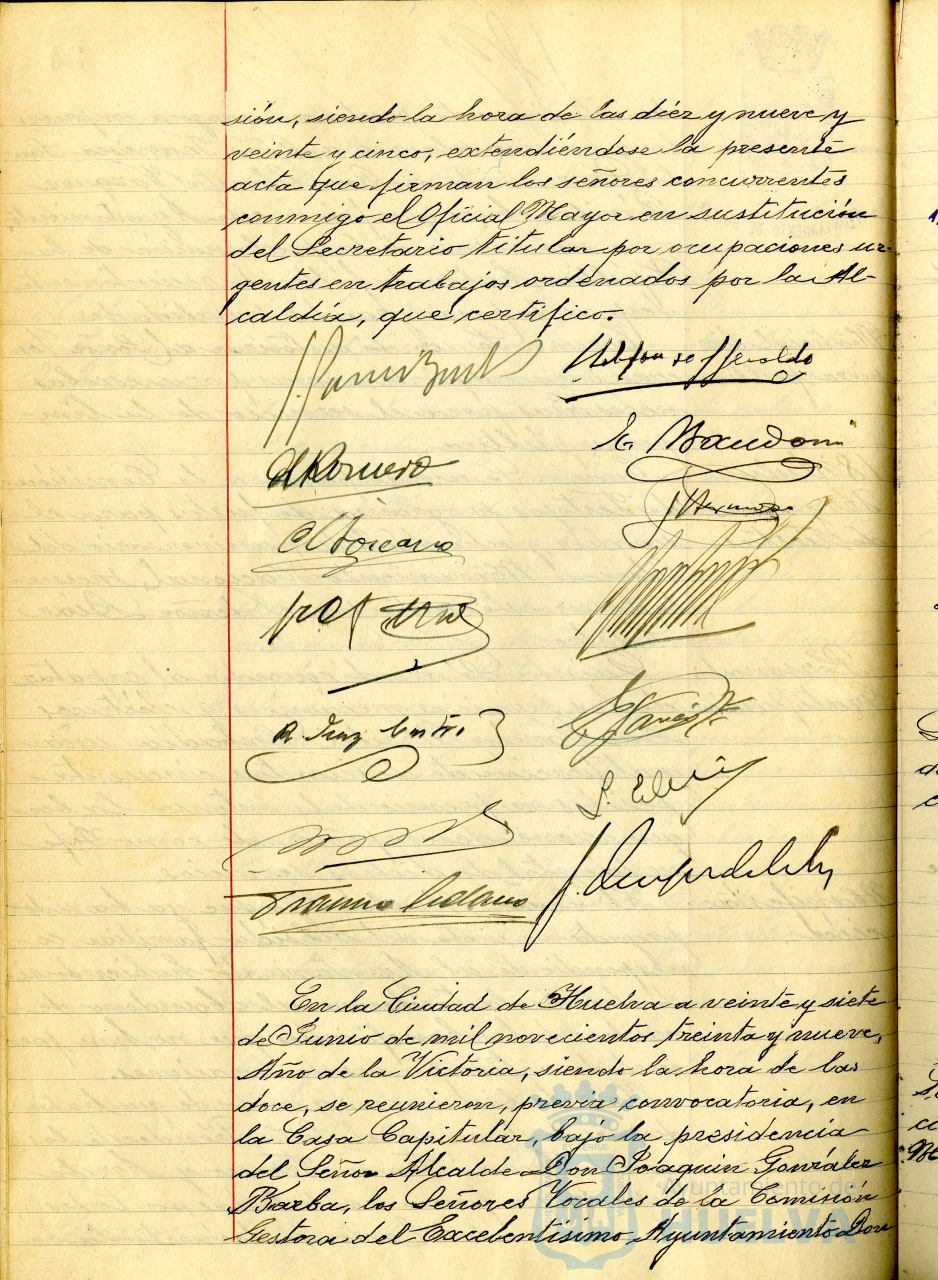 sión, siendo la hora de las diéz y nueve y
veinte y cinco, extendiéndose la presente
acta que firman los señores concurrentes
conmigo el Oficial Mayor en sustitución
del Secretario titular por ocupaciones ur-
gentes en trabajos ordenados por la Al-
caldía, que certifico.
Romero
R. Diaz Castro
En la Ciudad de Huelva a veinte y siete
de Junio de mil novecientos treinta y nueve,
Año de la Victoria, siendo la hora de las
doce, se reunieron, previa convocatoria, en
la Casa Capitular, bajo la presidencia
del Señor Alcalde Don Joaquin González
Barba, los Señores Vocales de la Comisión
Gestora del Excelentísimo Ayuntamiento Don
Ayuntamiento de
HUELVA